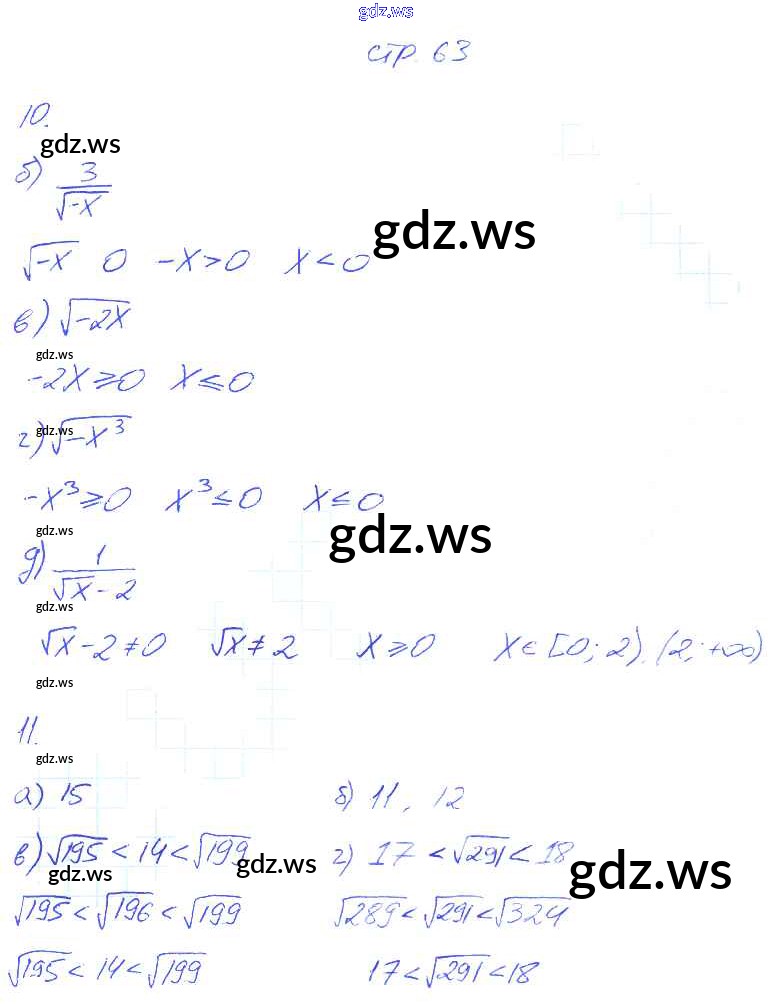 gdz.ws
стр. 63
10.
gdz.ws
б) 3/√-x
gdz.ws
√-x 0 -x>0 x<0
в) √-2x
gdz.ws
-2x⩾0 x⩽0
г) √-x³
gdz.ws
-x³⩾0 x³⩽0 x⩽0
gdz.ws
gdz.ws
д) 1/(√x-2)
gdz.ws
√x-2≠0 √x≠2 x⩾0 x∈[0;2).(2;+∞)
gdz.ws
11.
gdz.ws
а) 15 б) 11, 12
в) √195<14<√199 г) 17<√291<18
gdz.ws gdz.ws gdz.ws
√195<√196<√199 √289<√291<√324
√195<14<√199 17<√291<18